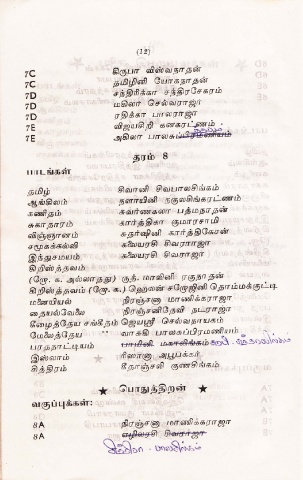 (12)
7C கிருபா விஸ்வநாதன்
7C தமிழினி யோகநாதன்
7D சந்திரிக்கா சந்திரசேகரம்
7D மகிலா செல்வராஜா
7D ரதிக்கா பாலராஜா
7E விஜயஸ்ரீ கனகரட்ணம்
7E அகிலா
தரம் 8
பாடங்கள்
தமிழ் சிவானி சிவபாலசிங்கம்
ஆங்கிலம் நளாயினி நகுலசிங்கரட்ணம்
கணிதம் சுவர்ணகலா பத்மநாதன்
சுகாதாரம் கார்த்திகா குமாரசாமி
விஞ்ஞானம் சுதர்ஷினி கார்த்திகேசன்
சமூகக்கல்வி கலையரசி சிவராஜா
இந்துசமயம் கலையரசி சிவராஜா
கிறிஸ்தவம்
(ஜே. க. அல்லாதது) ரூத் மாலினி ரகுநாதன்
கிறிஸ்தவம் (ஜே. க.) ஹெலன் சரோஜினி தொம்மக்குட்டி
மனையியல் நிரஞ்சனா மாணிக்கராஜா
தையல்வேலை நிரஞ்சனிதேவி நடராஜா
கீழைத்தேய சங்கீதம் ஜெயஸ்ரீ செல்வநாயகம்
மேலைத்தேய ,, வாசுகி பாலசுப்பிரமணியம்
பரதநாட்டியம் யாமினி
இஸ்லாம் ரிஸானா அபூபக்கர்
சித்திரம் கீதாஞ்சலி குணசிங்கம்
பொதுத்திறன்
வகுப்புக்கள்:
8A நிரஞ்சனா மாணிக்கராஜா
8A எழிலரசி சிவராஜா